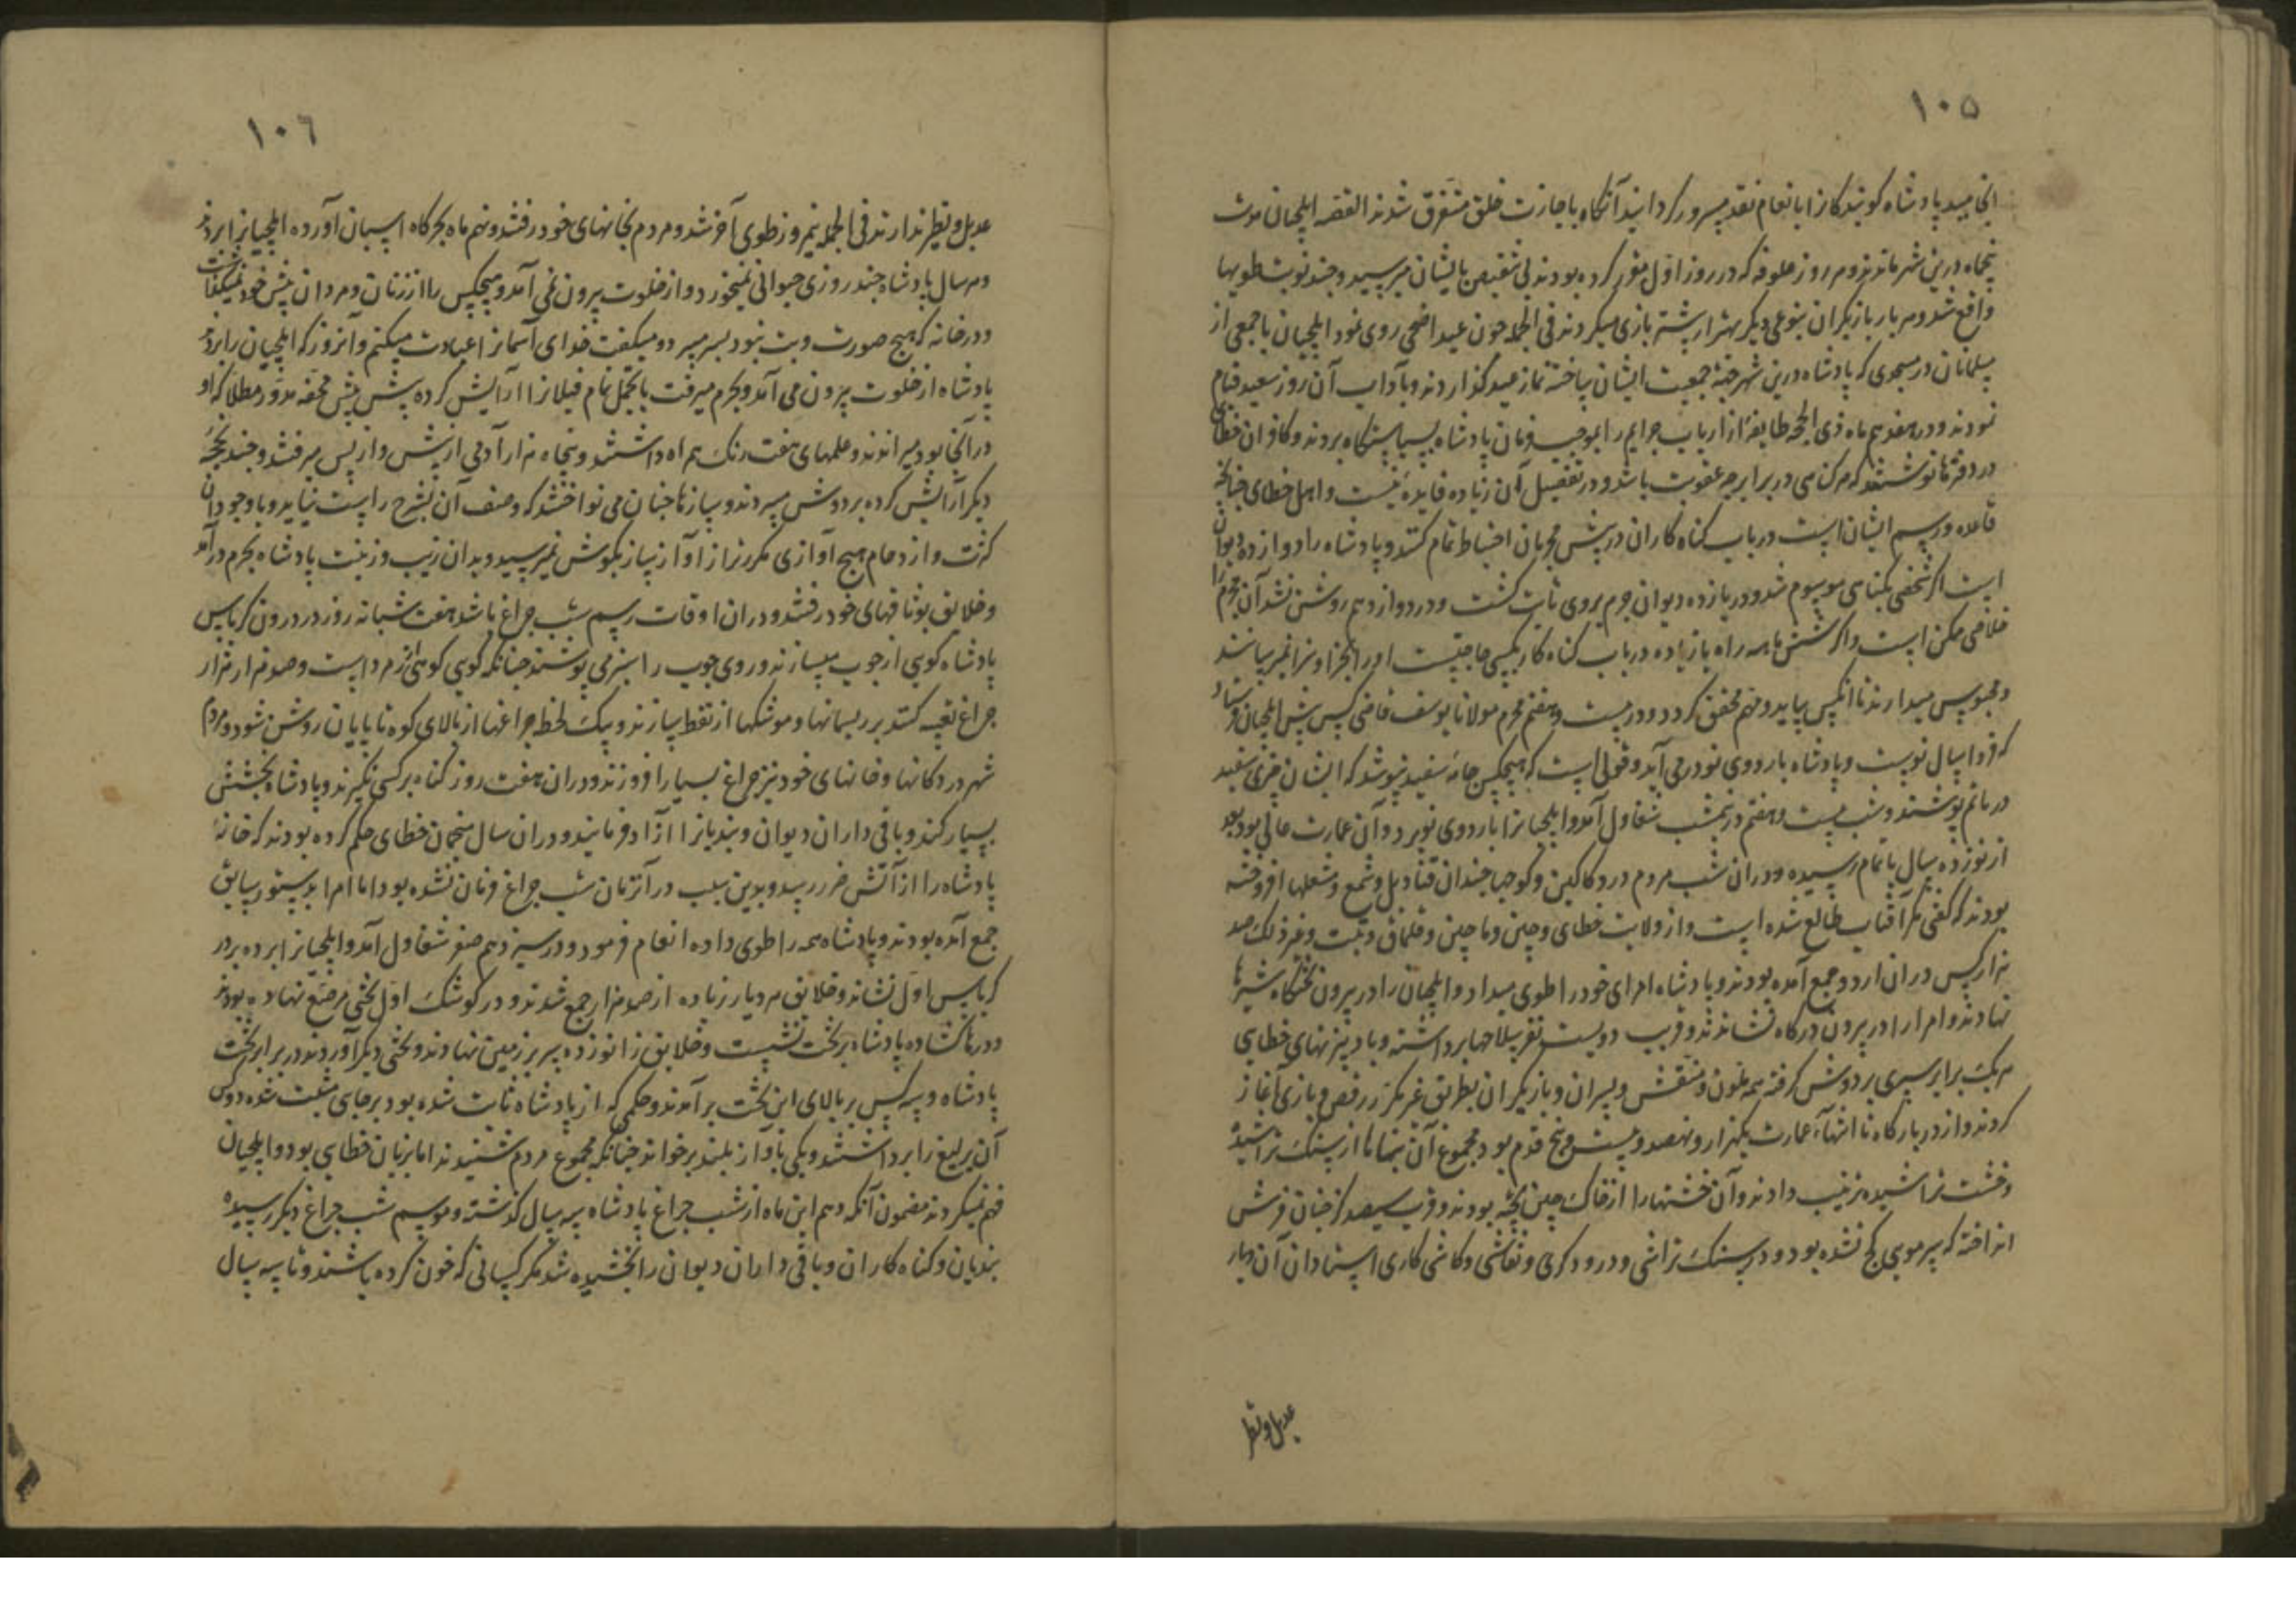 ١٠٥
انجامید پادشاه کویندکانرا بانعام نقد مسرور کردانید آنکاه باجازت خلق متفرق شدند القصه ایلچیان مدت
پنجماه درین شهر ماندند و هر روز علوفه که در روز اوّل مقرر کرده بودند بی تنقیص بایشان میرسید و چند نوبت طویها
واقع شد و هر بار بازیکران بنوعی دیکر بهتر از پیشتر بازی میکردند فی الجمله چون عید اضحی روی نمود ایلچیان با جمعی از
مسلمانان در مسجدی که پادشاه درین شهر جهة جمعیت ایشان ساخته نماز عید کذاردند و بآداب آن روز سعید قیام
نمودند و در هفدهم ماه ذی الحجه طایفهٔ از ارباب جرایم را بموجب فرمان پادشاه بسیاستکاه بردند و کافران خطای
در دفترها نوشتند که هر کناهی در برابر چه عقوبت باشد و در تفصیل آن زیاده فایده نیست و اهل خطای چنانچه
قاعده و رسم ایشان است در باب کناه کاران در پرسش مجرمان احتیاط تمام کنند و پادشاه را دوازده دیوان
است اکر شخصی بکناهی موسوم شد و در یازده دیوان جرم بروی ثابت کشت و در دوازدهم روشن نشد آن مجرم را
خلاصی ممکن است و اکر شش ماهه راه یا زیاده در باب کناه کار بکسی حاجتست او را بجزا و سزا نمیرسانند
و محبوس میدارند تا آنکس بیاید و مهم محقق کردد و در بیست و هفتم محرم مولانا یوسف قاضی کس پیش ایلچیان فرستاد
که فردا سال نو است و پادشاه باردوی نو در می آید و قولی است که هیچکس جامه سفید نپوشد که ایشان چیزی سفید
در ماتم پوشند و شب بیست و هفتم در نیمشب شقاول آمد و ایلچیانرا باردوی نو برد و آن عمارت عالی بود بعد
از نوزده سال باتمام رسیده و در آن شب مردم در دکاکین و کوچها چندان قنادیل و شمع و مشعلها افروخته
بودند که کفتی مکر آفتاب طالع شده است و از ولایت خطای و چین و ماچین و قلماق و تبت و غیر ذلک صد
هزار کس در آن اردو جمع آمده بودند و پادشاه امرای خود را طوی میداد و ایلچیان را در بیرون تختکاه شیرها
نهادند و امرا را در بیرون درکاه نشاندند و قریب دویست نفر سلاحها برداشته و بادبیزنهای خطایی
هریک برابر سپری بر دوش کرفته همه ملون و منقش و پسران و بازیکران بطریق غیر مکرر رقص و بازی آغاز
کردند و از در بارکاه تا انتهآء عمارت یکهزار و نهصد و بیست و پنج قدم بود مجموع آن بناها از سنک تراشیده
و خشت تراشیده ترتیب دادند و آن خشتها را از خاک چین پخته بودند و قریب سیصد کز چنان فرش
انداخته که سر مویی کج نشده بود و در سنک تراشی و درودکری و نقاشی و کاشی کاری استادان آن دیار
عدیل و نظیر
١٠٦
عدیل و نظیر ندارند فی الجمله نیمروز طوی آخر شد و مردم بخانهای خود رفتند و نهم ماه بحرکاه اسبان آورده ایلچیانرا بردند
و هر سال پادشاه چند روزی حیوانی نمیخورد و از خلوت بیرون نمی آمد و هیچکس را از زنان و مردان پیش خود نمیکذاشت
و در خانه که هیچ صورت و بت نبود بسر میبرد و میکفت خدای آسمانرا عبادت میکنم و آنروز که ایلچیان را بردند
پادشاه از خلوت بیرون می آمد و بحرم میرفت با تجمل تمام فیلانرا آرایش کرده پیش پیش محفه مدور مطلا که او
در آنجا بود میراندند و علمهای هفت رنک همراه داشتند و پنجاه هزار آدمی از پیش و از پس میرفتند و چند محفّه
دیکر آرایش کرده بر دوش میبردند و سازها چنان می نواختند که وصف آن بشرح راست نیاید و با وجود آن
کثرت و ازدحام هیچ آوازی مکر از آواز ساز بکوش نمیرسید و بدان زیب و زینت پادشاه بحرم درآمد
و خلایق بوثاقهای خود رفتند و در آن اوقات رسم شب چراغ باشد هفت شبانه روز در درون کریاس
پادشاه کویی از چوب میسازند و روی چوب را سبز می پوشند چنانکه کویی کوهی از زمرد است و صد هزار هزار
چراغ تعبیه کنند بر ریسمانها و موشکها از نفط سازند و بیک لحظه چراغها از بالای کوه تا پایان روشن شود و مردم
شهر در دکانها و خانهای خود نیز چراغ بسیار افروزند و در آن هفت روز کناه بر کسی نکیرند و پادشاه بخشش
بسیار کند و باقی داران دیوان و بندیانرا آزاد فرمایند و در آن سال منجمان خطای حکم کرده بودند که خانهٔ
پادشاه را از آتش ضرر رسد و بدین سبب در آن زمان شب چراغ فرمان نشده بود اما امرا بدستور سابق
جمع آمده بودند و پادشاه همه را طوی داده انعام فرمود و در سیزدهم صفر شقاول آمد و ایلچیانرا برده بر در
کریاس اول نشاند و خلایق هر دیار زیاده از صد هزار جمع شدند و در کوشک اول تختی مرصع نهاده بودند
و درها کشاده پادشاه بر تخت نشست و خلایق زانو زده سر بر زمین نهادند و تختی دیکر آوردند در برابر تخت
پادشاه و سه کس بر بالای این تخت برآمدند و حکمی که از پادشاه ثابت شده بود بر جای مثبت شده دو کس
آن یرلیغ را برداشتند و یکی بآواز بلند برخواند چنانکه مجموع مردم شنیدند اما بزبان خطایی بود و ایلچیان
فهم نمیکردند مضمون آنکه دهم این ماه از شب چراغ پادشاه سه سال کذشته و موسم شب چراغ دیکر رسیده
بندیان و کناه کاران و باقی داران دیوان را بخشیده شد مکر کسانی که خون کرده باشند و تا سه سال